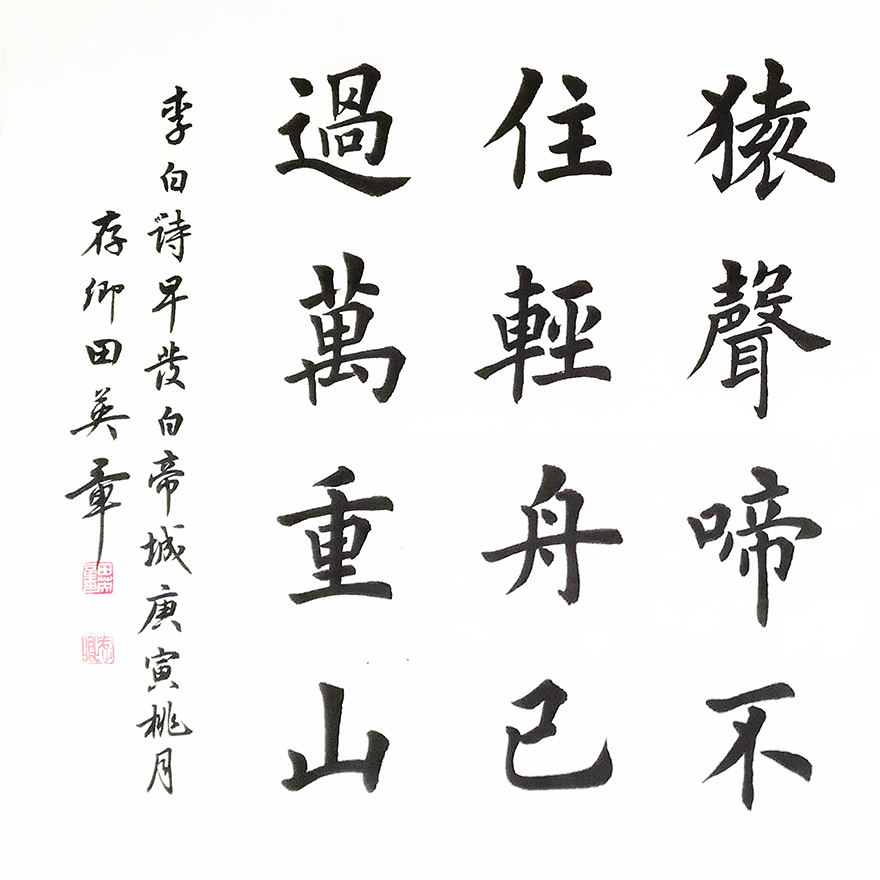 猿聲啼不
住輕舟已
過萬重山
李白詩早發白帝城庚寅桃月
存卿田英章